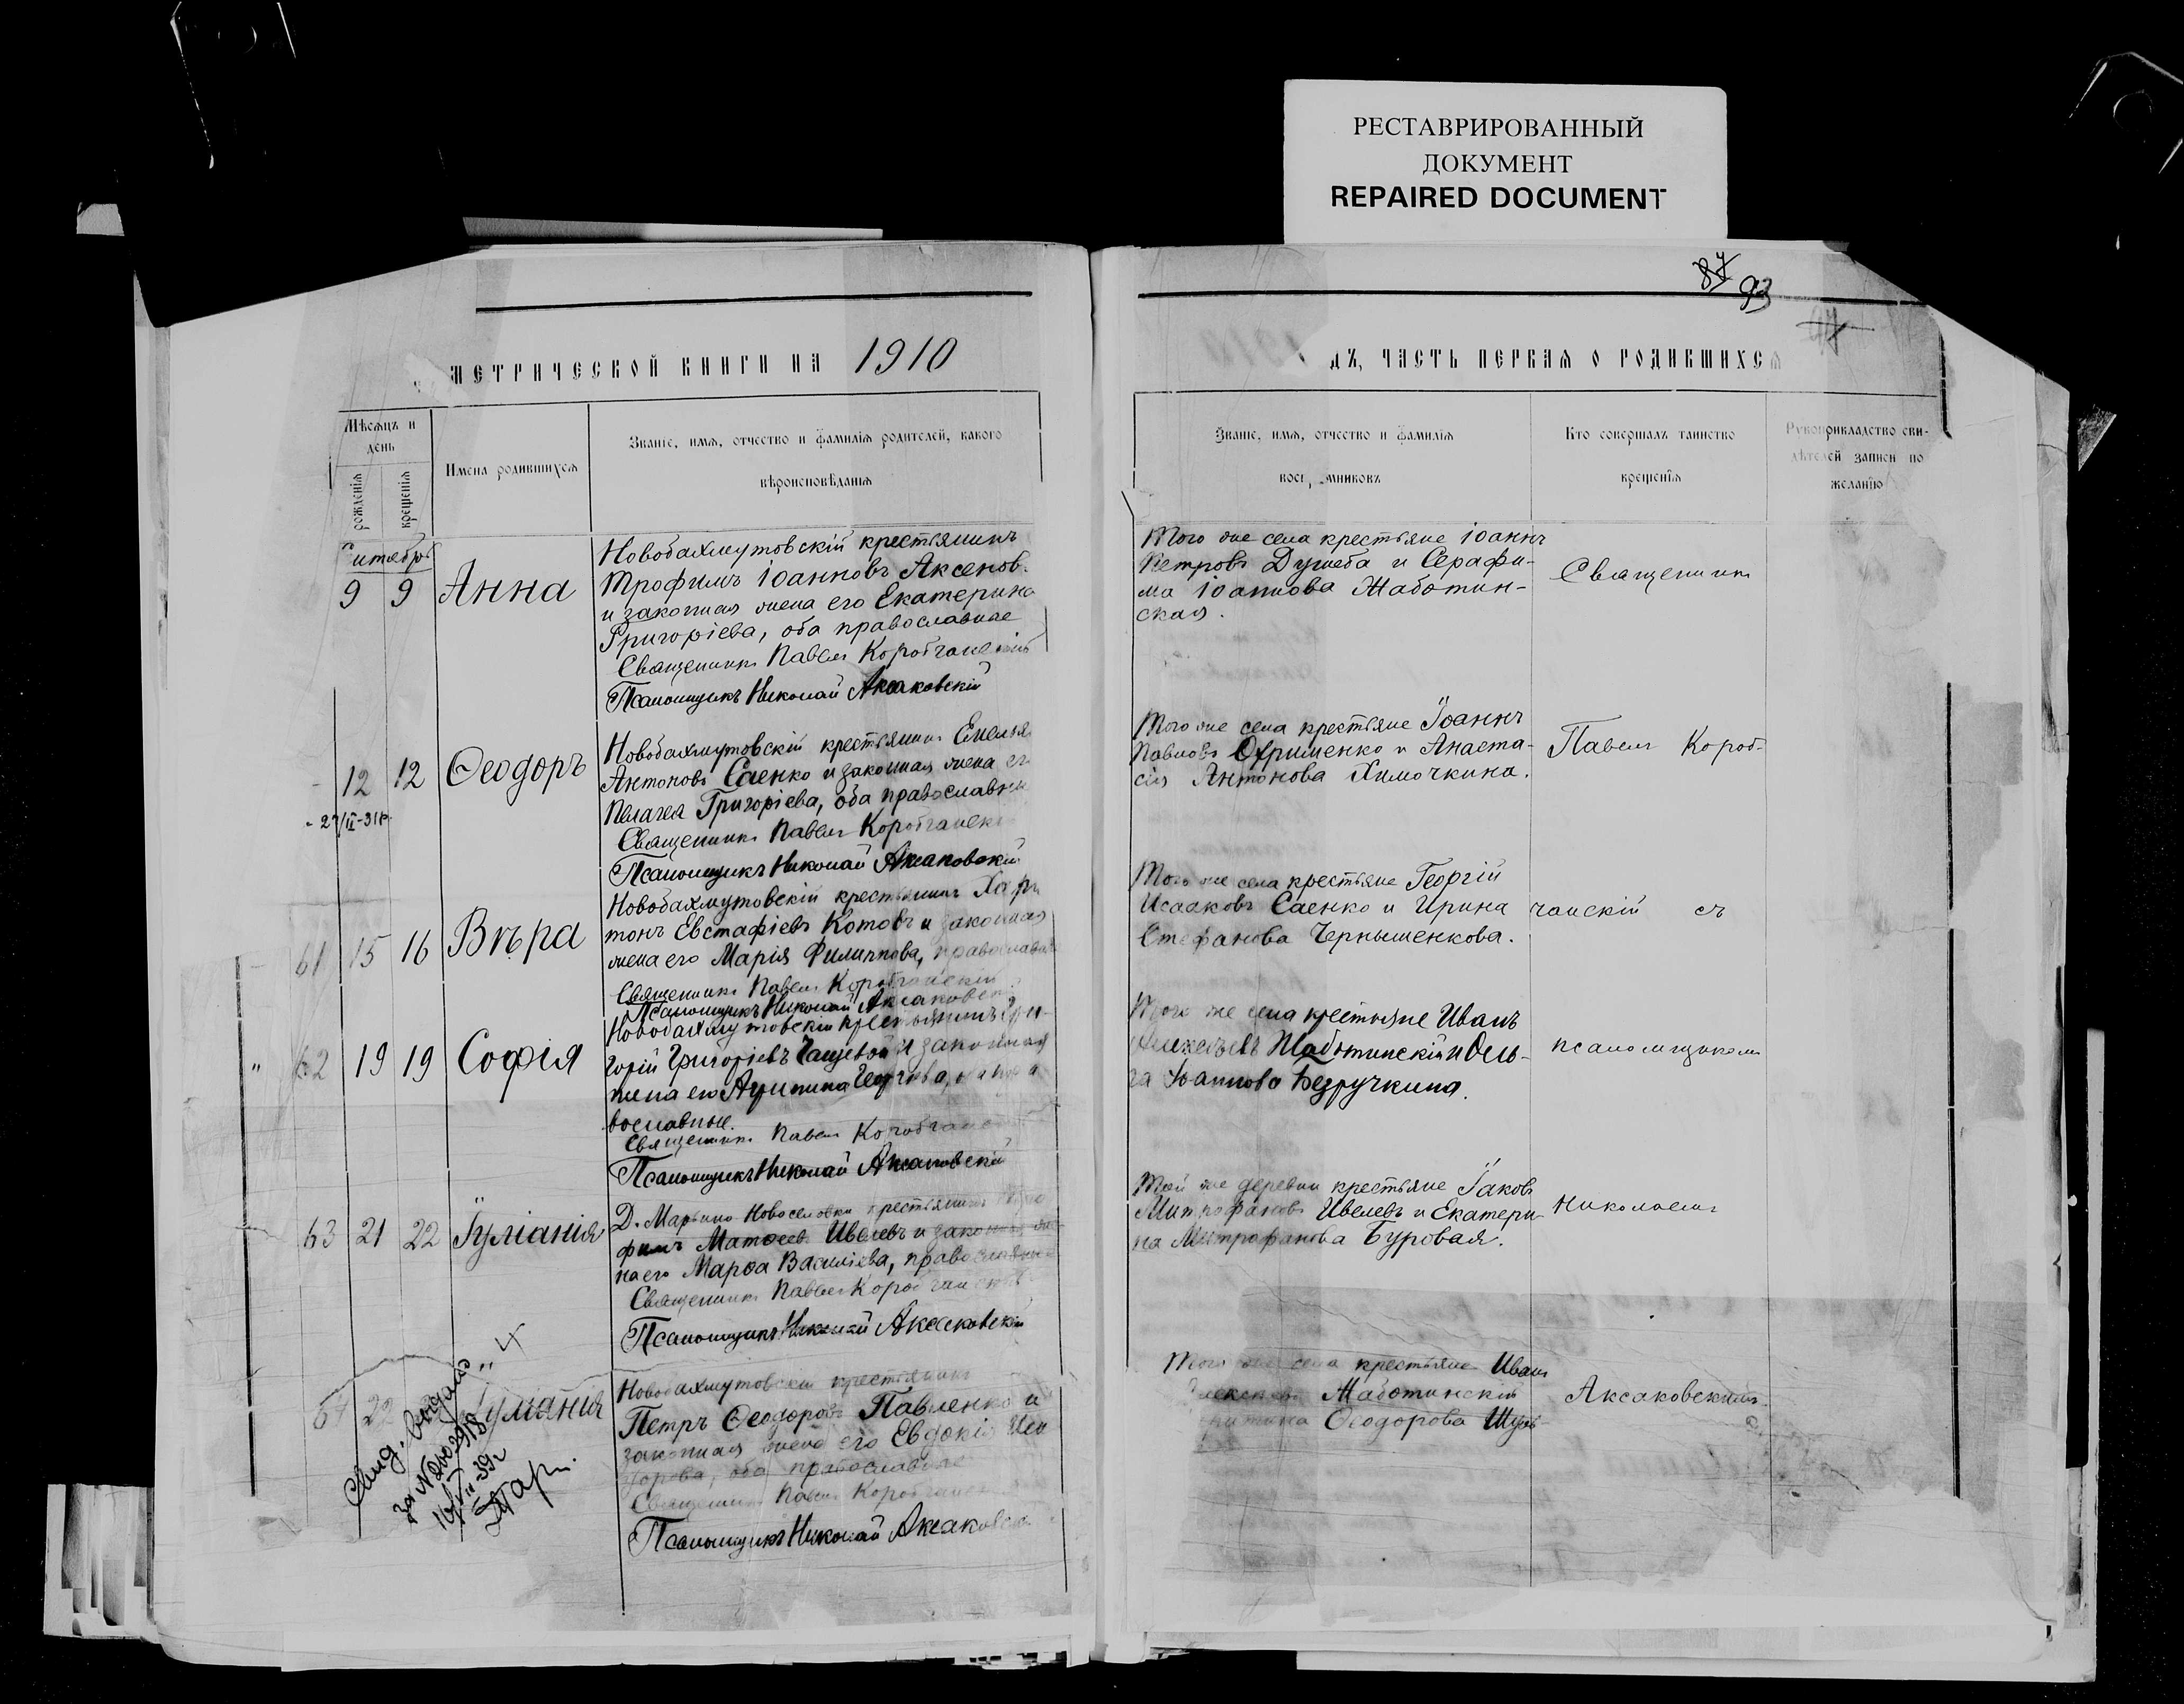 РЕСТАВРИРОВАННЫЙ
ДОКУМЕНТ
REPAIRED DOCUMENT
87 93
МЕТРИЧЕСКОЙ КНИГИ НА 1910
ДЪ, ЧАСТЬ ПЕРВАЯ О РОДИВШИХСЯ
Мѣсяцъ и
день
рожденія
крещенія
Имена родившихся
Званіе, имя, отчество и фамилія родителей, какого
вѣроисповѣданія
Званіе, имя, отчество и фамилія
Кто совершалъ таинство
крещенія
Рукоприкладство сви-
дѣтелей записи по
желанію
9 9 Анна
Новобахмутовскій крестьянинъ
Трофимъ Іоанновъ Аксенов
и законная жена его Екатерина
Григоріева, оба православные
Священникъ Павелъ Коробчанскій
Псаломщикъ Николай Аксаковскій
Того же села крестьяне Іоаннъ
Петровъ Дузеба и Серафи-
ма Іоаннова Жаботин-
ская.
Священникъ
12 12 Ѳеодоръ
27/II-31г.
Новобахмутовскій крестьянинъ Емелья
Антоновъ Саенко и законная жена ег
Пелагея Григоріева, оба православны
Священникъ Павелъ Коробчанск
Псаломщикъ Николай Аксаковскій
Того же села крестьяне Іоаннъ
Павловъ Охрименко и Анаста-
сія Антонова Химочкина.
Павелъ Короб-
61 15 16 Вѣра
Новобахмутовскій крестьянинъ Хари
тонъ Евстафіевъ Котовъ и законная
жена его Марія Филиппова, православн
Священникъ Павелъ Коробчанскій
Псаломщикъ Николай Аксаковск
Того же села крестьяне Георгій
Исааковъ Саенко и Ирина
Стефанова Чернышенкова.
чанскій съ
62 19 19 Софія
Новобахмутовскій крестьянинъ Гри-
горій Григоріевъ и законная
жена его
вославные.
Священникъ Павелъ Коробчанск
Псаломщикъ Николай Аксаковскій
Того же села крестьяне Иванъ
Жаботинскій и Оль-
га Іоаннова Безручкина.
псаломщикомъ
63 21 22 Іуліанія
Д. Марьино Новоселовки крестьянинъ
фимъ Матѳеев Ивелевъ и законная же
на его Марѳа Василіева, православные
Священникъ Павелъ Коробчанскій
Псаломщикъ Николай Аксаковскій
Той же деревни крестьяне Іаковъ
Митрофановъ Ивелевъ и Екатери-
на Митрофанова Буровая.
Николаемъ
64 22 Іуліанія
Свид. выдано
16/VII-39г
Новобахмутовскій крестьянинъ
Петръ Ѳеодоровъ Павленко и
законная жена его Евдокія Иси
дорова, оба православные
Священникъ Павелъ Коробчанск
Псаломщикъ Николай Аксаковск
Того же села крестьяне Иванъ
Жаботинскій
Ѳеодорова
Аксаковскимъ